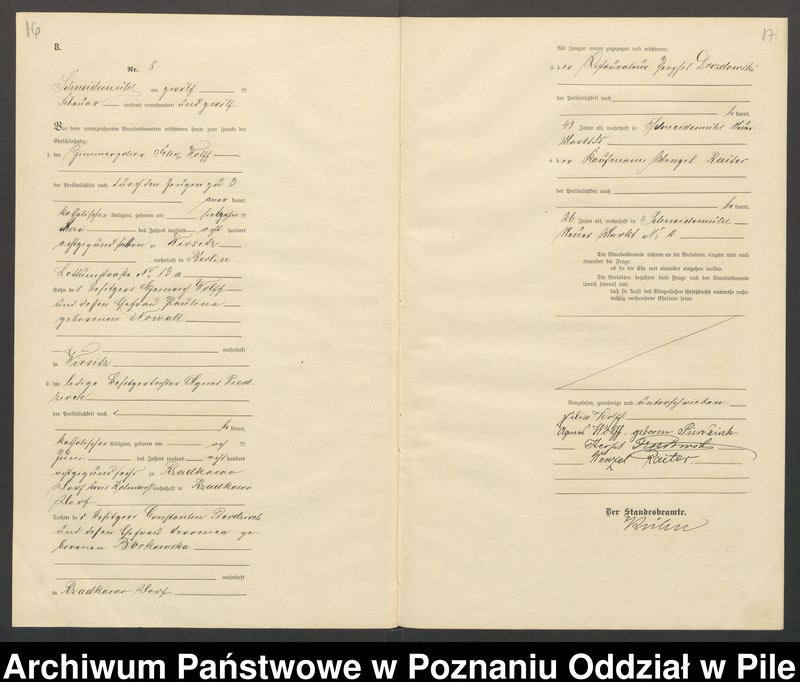 16
8.
Nr. 8
Schneidemühl am zwölf ten
Februar tausend neunhundert und zwölf
Vor dem unterzeichneten Standesbeamten erschienen heute zum Zwecke der
Eheschließung:
1. der Felix Wolff
der Persönlichkeit nach durch den Zeugen zu 3
aner kannt,
katholischer Religion, geboren am siebzehn ten
des Jahres tausend acht hundert
achtzigundsieben zu Wirsitz
, wohnhaft in Berlin
Lottumstraße No 13a
Sohn des Besitzers Heinrich Wolff
und dessen Ehefrau Pauline
geborenen Nowak
wohnhaft
in Wirsitz
2. die ledige Besitzertochter Agnes
der Persönlichkeit nach
be kannt,
katholischer Religion, geboren am
Juni des Jahres tausend acht hundert
achtzigundsechs zu Radkowo
Dorf Kreis Kolmar wohnhaft in Radkowo
Dorf
Tochter des Besitzers Constantin
und dessen Ehefrau Veronica ge-
borenen Borkowska
wohnhaft
in Radkowo Dorf
17
Als Zeugen waren zugezogen und erschienen:
3. der Restaurateur Joseph Drozdowski
der Persönlichkeit nach
be kannt,
43 Jahre alt, wohnhaft in Schneidemühl Neuer
Markt
4. der Kaufmann Wenzel Raiter
der Persönlichkeit nach
be kannt,
26 Jahre alt, wohnhaft in Schneidemühl
Neuer Markt No
Der Standesbeamte richtete an die Verlobten einzeln und nach
einander die Frage:
ob sie die Ehe mit einander eingehen wollen.
Die Verlobten bejahten diese Frage und der Standesbeamte
sprach hierauf aus,
daß sie kraft des Bürgerlichen Gesetzbuchs nunmehr recht-
mäßig verbundene Eheleute seien.
Vorgelesen, genehmigt und unterschrieben
Felix Wolff
Agnes Wolff geborene
Joseph Drozdowski
Wenzel Raiter
Der Standesbeamte.
Archiwum Państwowe w Poznaniu Oddział w Pile